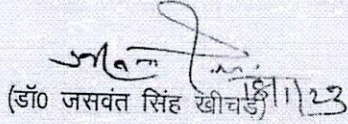 (डॉ0 जसवंत सिंह खीचड़)
18/1/23